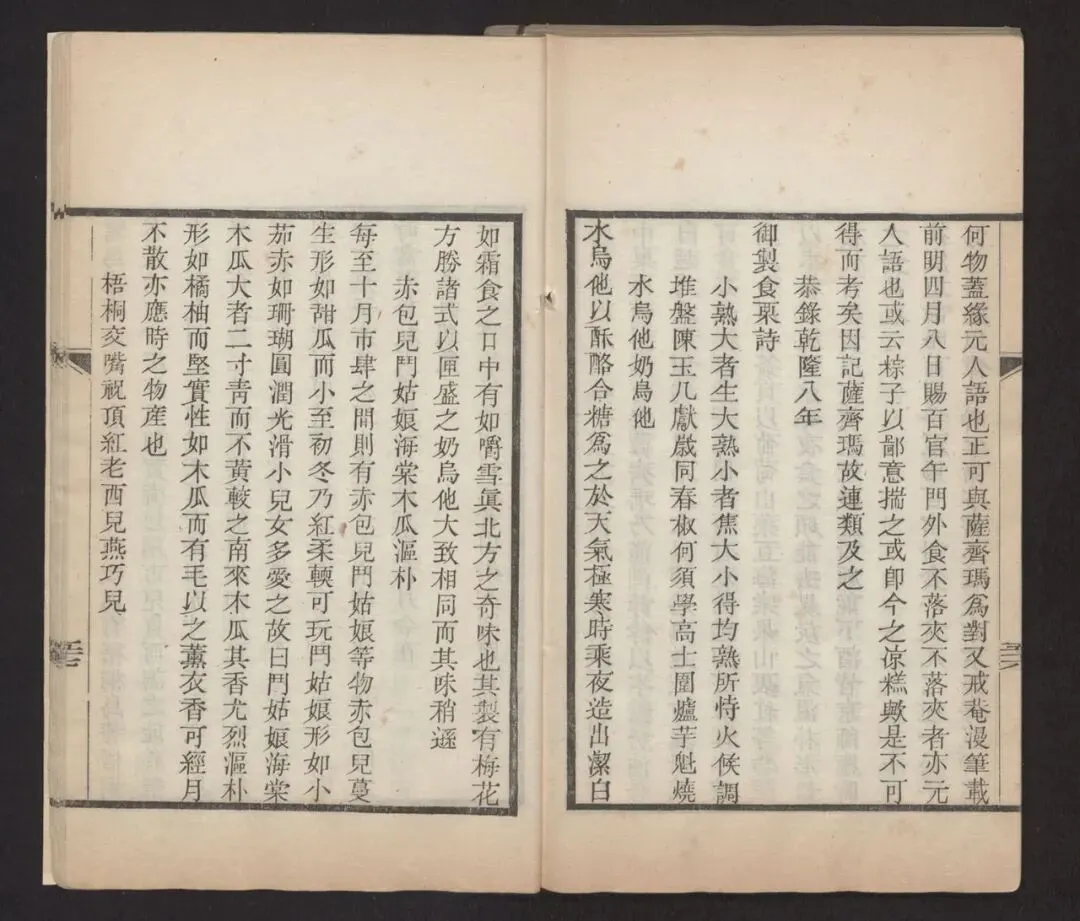 何物蓋緣元人語也正可與薩齊瑪爲對又戒菴漫筆載
前明四月八日賜百官午門外食不落夾不落夾者亦元
人語也或云粽子以鄙意揣之或卽今之凉糕歟是不可
得而考矣因記薩齊瑪故連類及之
恭錄乾隆八年
御製食栗詩
小熟大者生大熟小者焦大小得均熟所恃火候調
堆盤陳玉几獻歲同春椒何須學高士圍爐芋魁燒
水烏他奶烏他
水烏他以酥酪合糖爲之於天氣極寒時乘夜造出潔白
如霜食之口中有如嚼雪眞北方之奇味也其製有梅花
方勝諸式以匣盛之奶烏他大致相同而其味稍遜
赤包兒鬥姑娘海棠木瓜漚朴
每至十月市肆之間則有赤包兒鬥姑娘等物赤包兒蔓
生形如甜瓜而小至初冬乃紅柔輭可玩鬥姑娘形如小
茄赤如珊瑚圓潤光滑小兒女多愛之故曰鬥姑娘海棠
木瓜大者二寸靑而不黃較之南來木瓜其香尤烈漚朴
形如橘柚而堅實性如木瓜而有毛以之薰衣香可經月
不散亦應時之物產也
梧桐交嘴祝頂紅老西兒燕巧兒